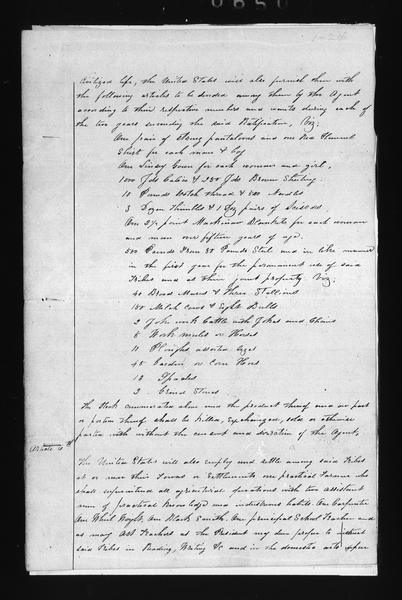 civilized life, the United States will also furnish them with
the following articles to be divided among them by the Agent
according to their respective numbers and wants during each of
the two years succeeding the said Ratification, Viz;
One pair of Strong pantaloons and one Red Flannel
Shirt for each man & boy
One Linsey Gown for each woman and girl,
Yds Calico & Yds Brown Sheeting
10 Pounds Scotch thread & Needles
3 Dozen Thimbles & 1 Doz pairs of Scissors
One 2½ point Mackinaw Blanket for each woman
and man over fifteen years of age.
Pounds Iron Pounds Steel and in like manner
in the first year for the permanent use of said
Tribes and as their joint property Viz;
Brood Mares & Three Stallions
Milch Cows & Eight Bulls
2 Yoke work Cattle with Yokes and Chains
8 Work mules or Horses
11 Ploughs assorted sizes
45 Garden or Corn Hoes
13 Spades
3 Stones
The Stock enumerated above and the product thereof and no part
or portion thereof shall be killed, exchanged, sold or otherwise
parted with without the consent and direction of the Agent,
Article
The United States will also employ and settle among said Tribes
at or near their Towns or Settlements one practical Farmer who
shall superintend all agricultural operations with two assistant
men of practical knowledge and industrious habits. One Carpenter
One Wheel Wright, One Black Smith, One principal School Teacher and
as many Asst Teachers as the President may deem proper to instruct
said Tribes in Reading, Writing &c and in the domestic arts upon